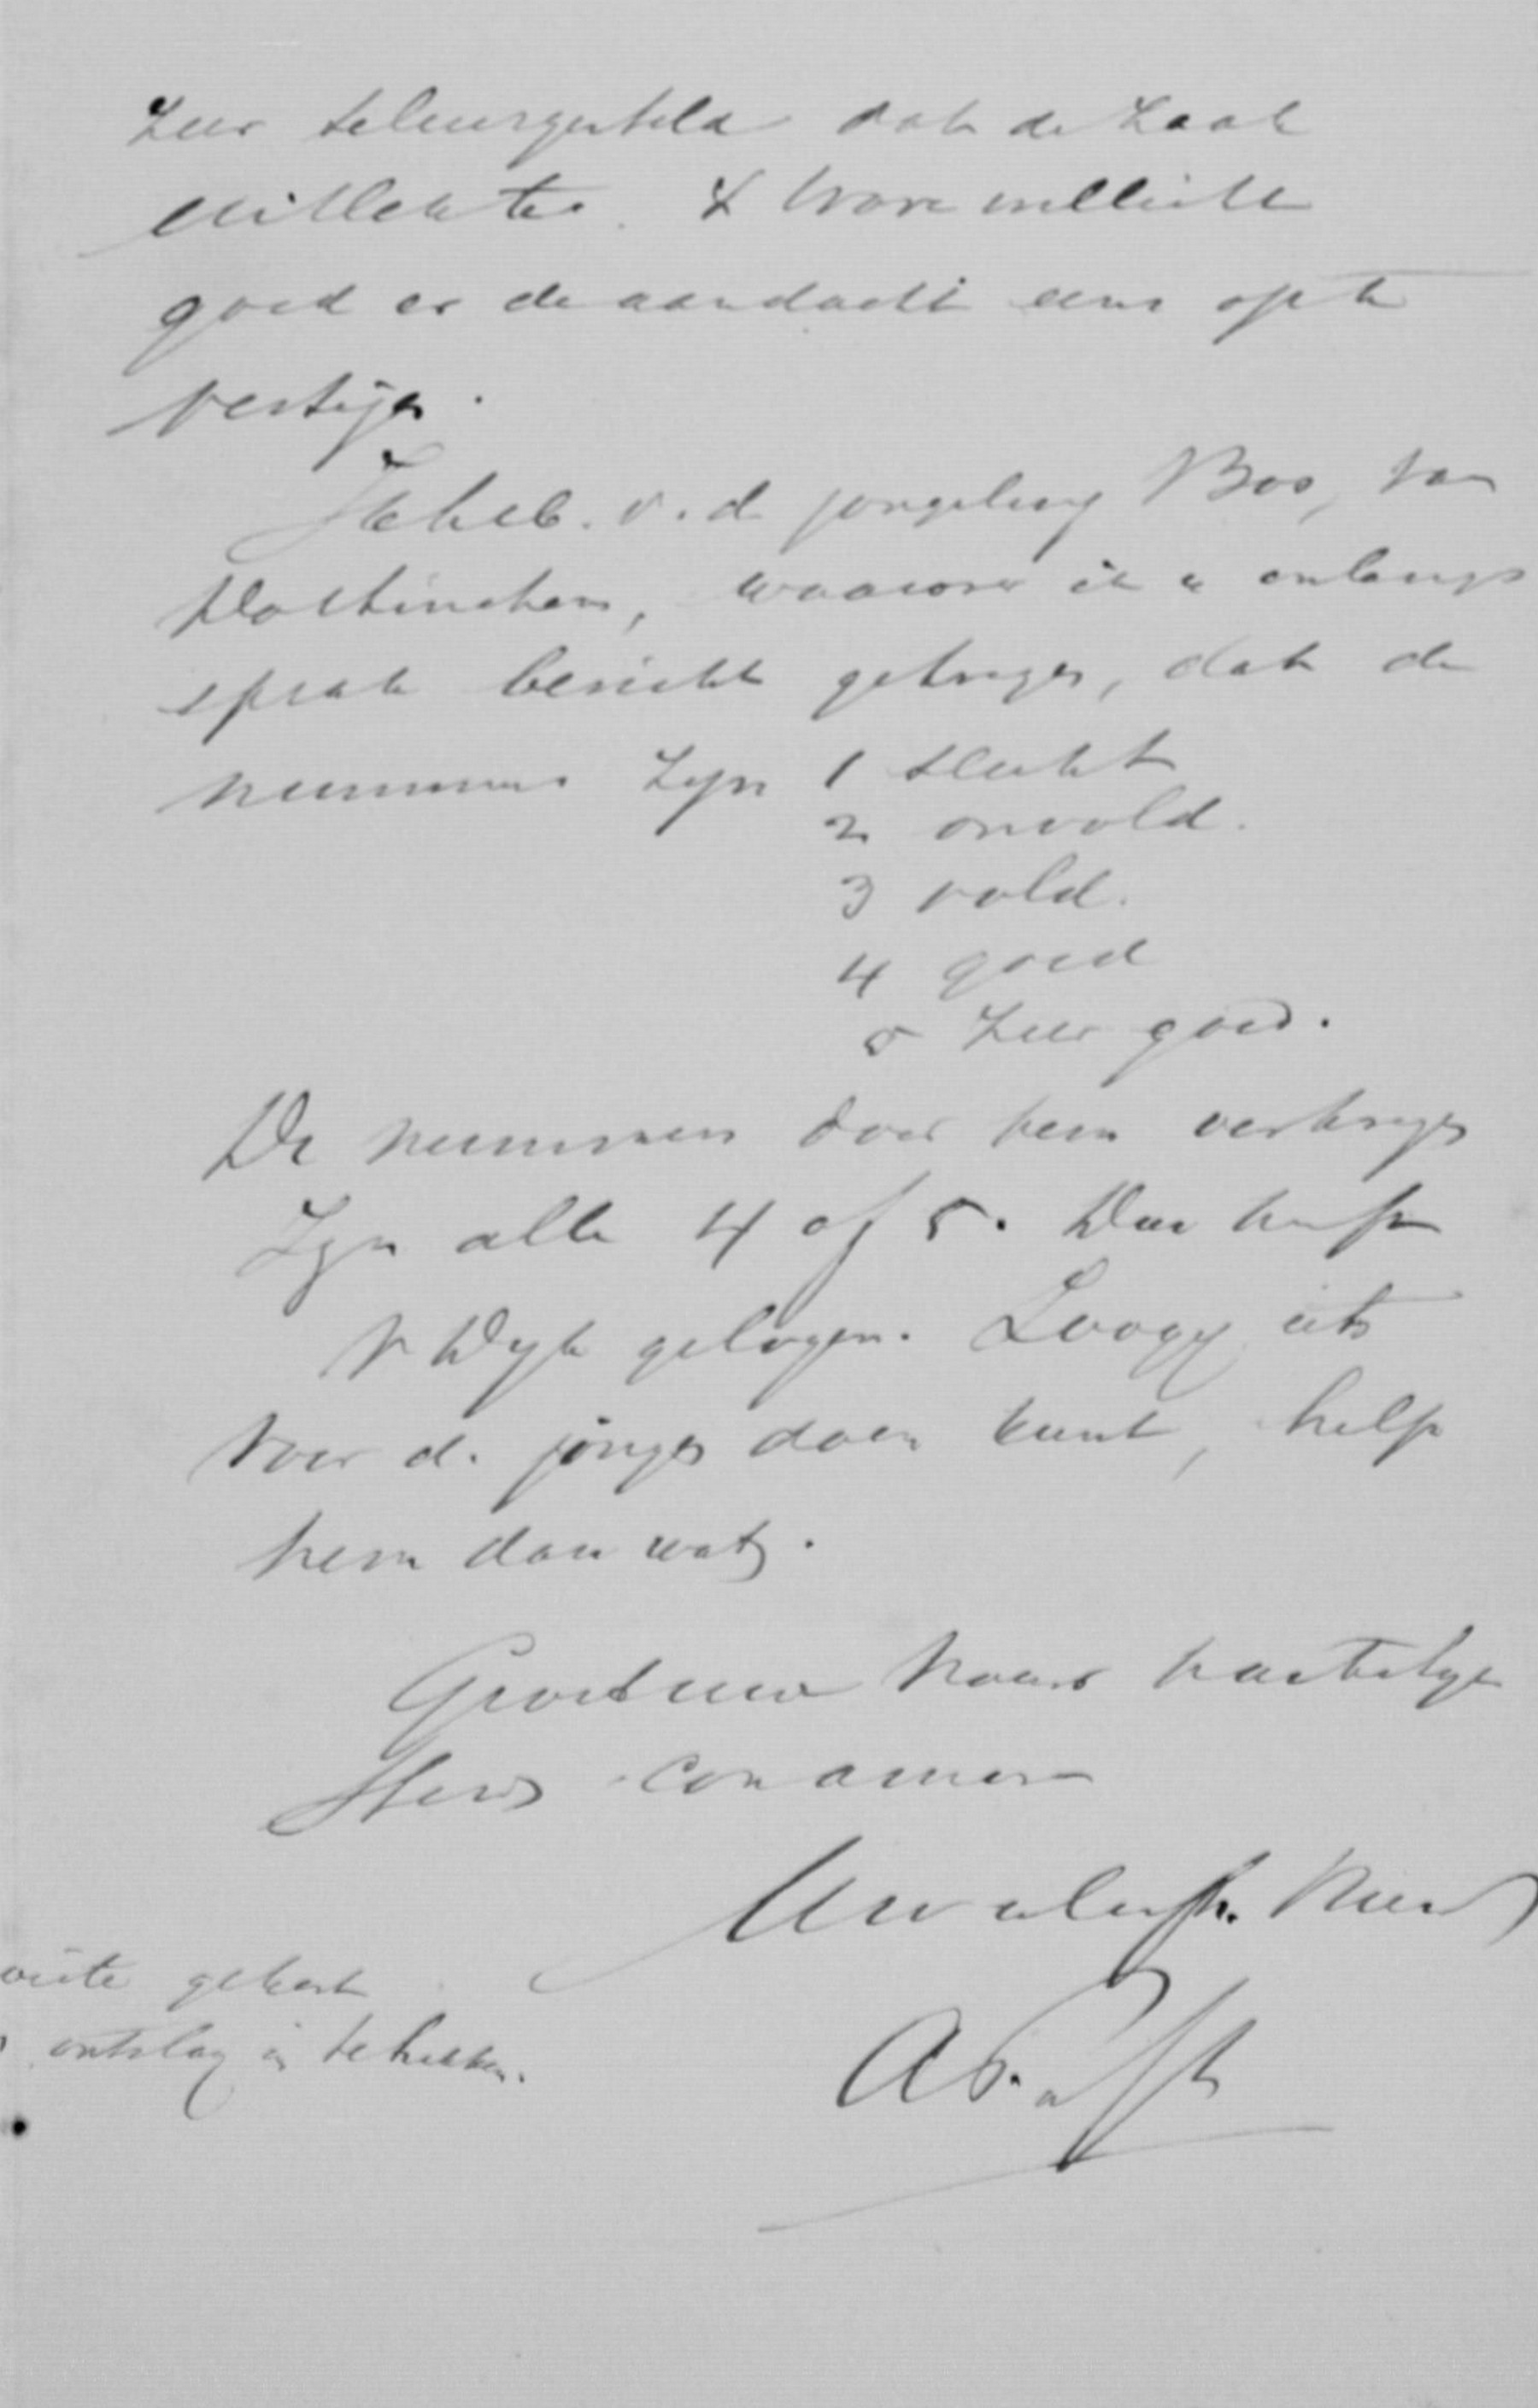 zeer teleurgesteld dat de zaak
uitlekte. 't ware wellicht
goed er de aandacht eens op te
vestigen.
Ik heb v. d. jongeling Bos, van
Doetinchem, waarover ik u onlangs
sprak bericht gekregen, dat de
nummers zijn 1 slecht
2 onvold.
3 vold.
4 goed
5 zeer goed.
De nummers door hem verkregen
zijn alle 4 of 5. Dus heeft
v Dijk gelogen. Zoo gij iets
voor d. jongen doen kunt, help
hem dan wat.
Groet uw vrouw hartelijk
Steeds con amore
Uw vriend
geheel
ontslag in te trekken.